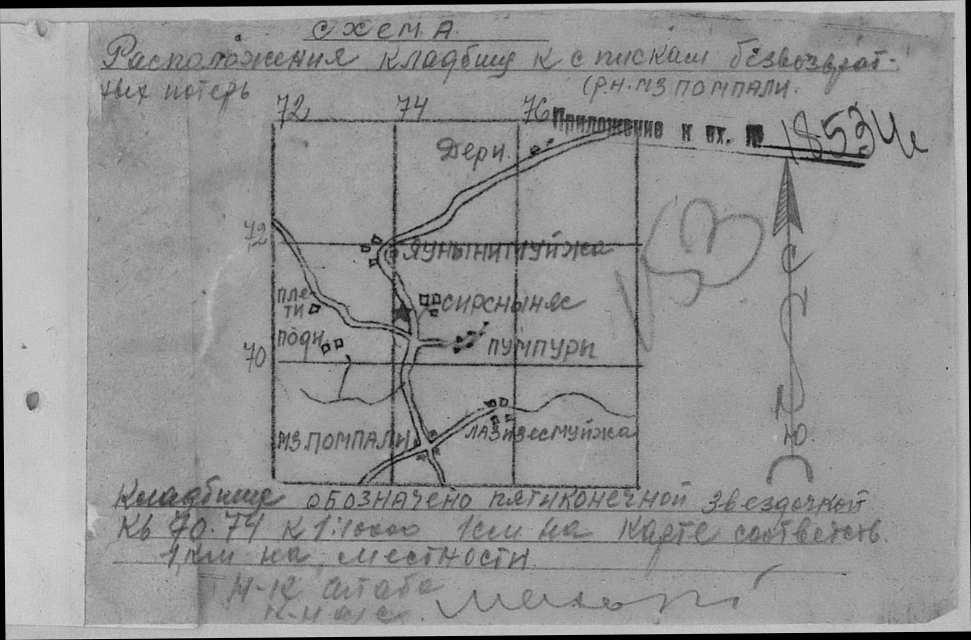 СХЕМА
Расположения кладбищ к спискам безвозврат-
ных потерь
(Р.Н. МЗ ПОМПАЛИ.
72 74 76
Приложение к вх. № 18534с
Дери.
72
ЯУНЫНИМУЙЖА
ПЛЕ-
ТИ
СИРСНЫНЯС
ПОДИ
ПУМПУРИ
70
С
МЗ.ПОМПАЛИ
ЛАЗ
Ю.
Кладбище обозначено пятиконечной звездочкой
КВ 70.74 К 1:10000 1см на карте соответств.
1 км на местности
Н-К штаба